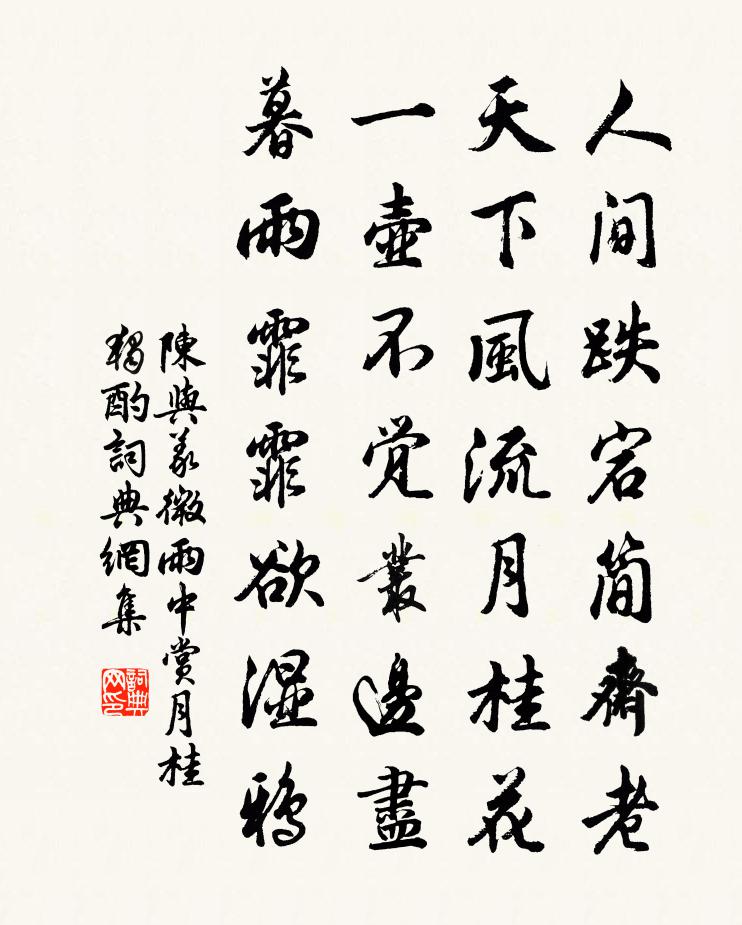 人间跌宕简齋老
天下風流月桂花
一壺不覚叢邊盡
暮雨霏霏欲湿鴉
陳與義微雨中賞月桂
獨酌詞典網集
詞典网印